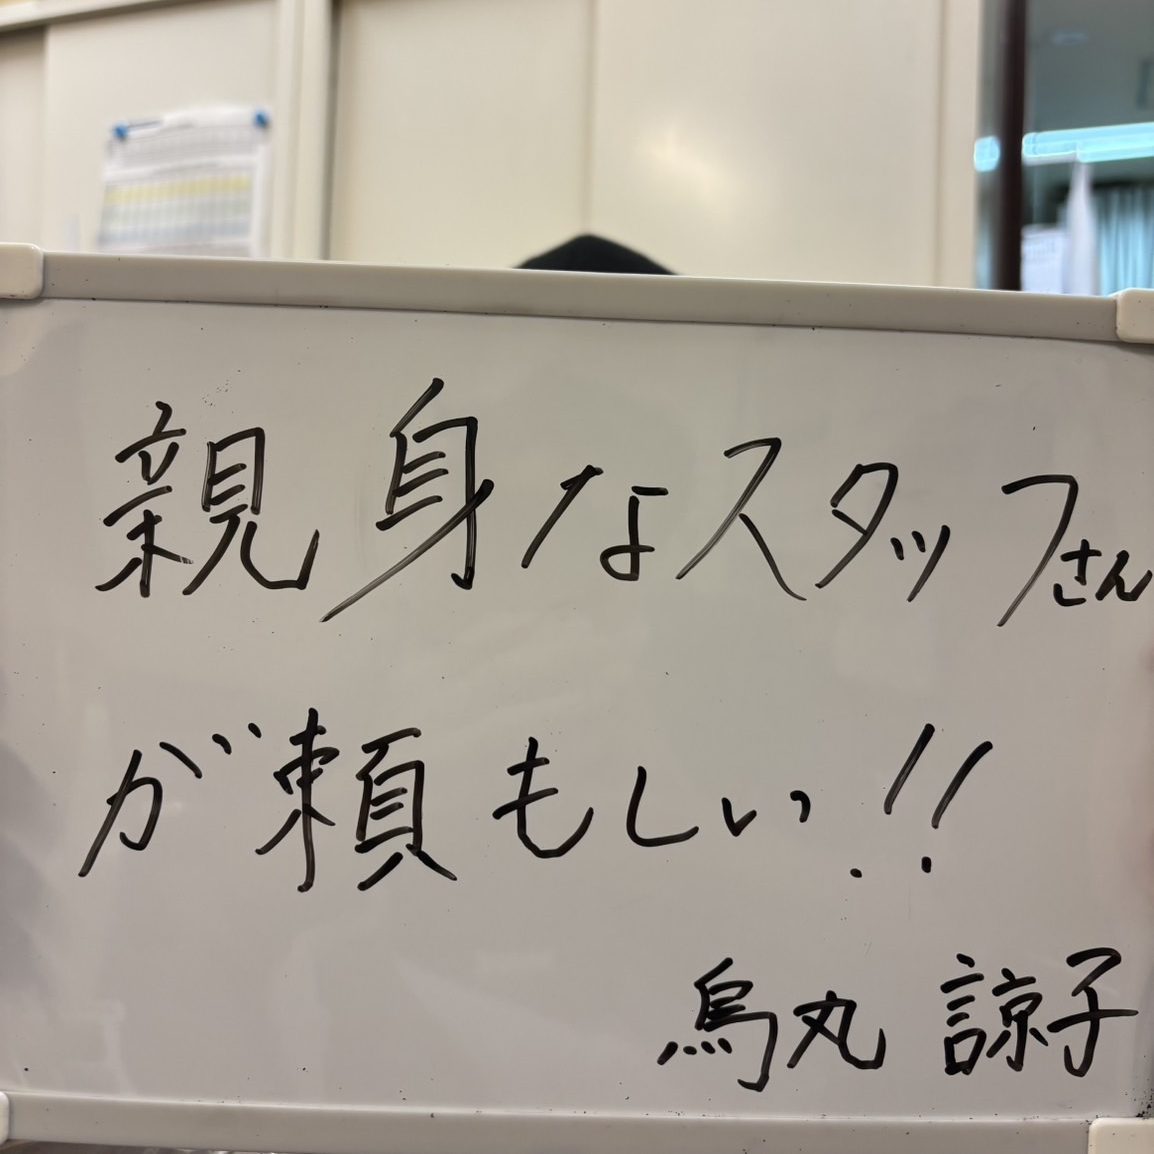 親身なスタッフさん
が頼もしい!!
烏丸 諒子